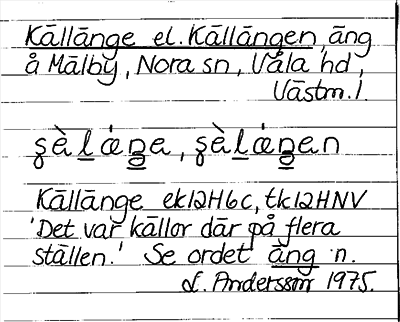 Källänge el. Källängen, äng
å Mälby, Nora sn, Våla hd,
Västm. l.
Källänge ek12H6c, tk12HNV
'Det var källor där på flera
ställen.' Se ordet äng n.
L. Andersson 1975.